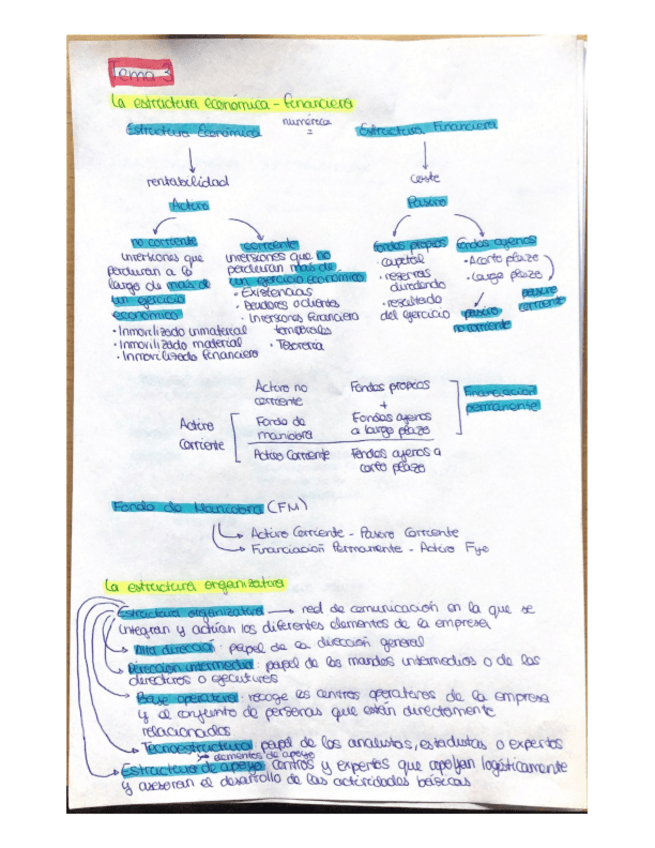 Tema 3
La estructura económica - financiera
Estructura Económica numérica = Estructura Financiera
rentabilidad
coste
Activo
Pasivo
no corriente
inversiones que perduran a lo largo de más de un ejercicio económico
· Inmovilizado inmaterial
· Inmovilizado material
· Inmovilizado financiero
corriente
inversiones que no perduran más de un ejercicio económico
· Existencias
· Deudores o clientes
· Inversiones financiera temporales
· Tesorería
Fondos propios
· capital
· reservas
· resultado del ejercicio
Fondos ajenos
· A corto plazo
· Largo plazo
pasivo corriente
pasivo no corriente
Activo no corriente
Fondos propios
+
Fondo de maniobra
Fondos ajenos a largo plazo
Financiación permanente
Activo Corriente
Activo Corriente
Fondos ajenos a corto plazo
Fondo de Maniobra (FM)
Activo Corriente - Pasivo Corriente
Financiación Permanente - Activo Fijo
La estructura organizativa
Estructura organizativa → red de comunicación en la que se
integran y actúan los diferentes elementos de la empresa
Alta dirección: papel de la dirección general
Dirección intermedia: papel de los mandos intermedios o de los
directores o ejecutivos
Base operativa: recoge los centros operativos de la empresa
y al conjunto de personas que están directamente
relacionados
Tecnoestructura: papel de los analistas, estadistas o expertos
→ elementos de apoyo
Estructura de apoyo: centros y expertos que apoyan logísticamente
y asesoran el desarrollo de las actividades básicas